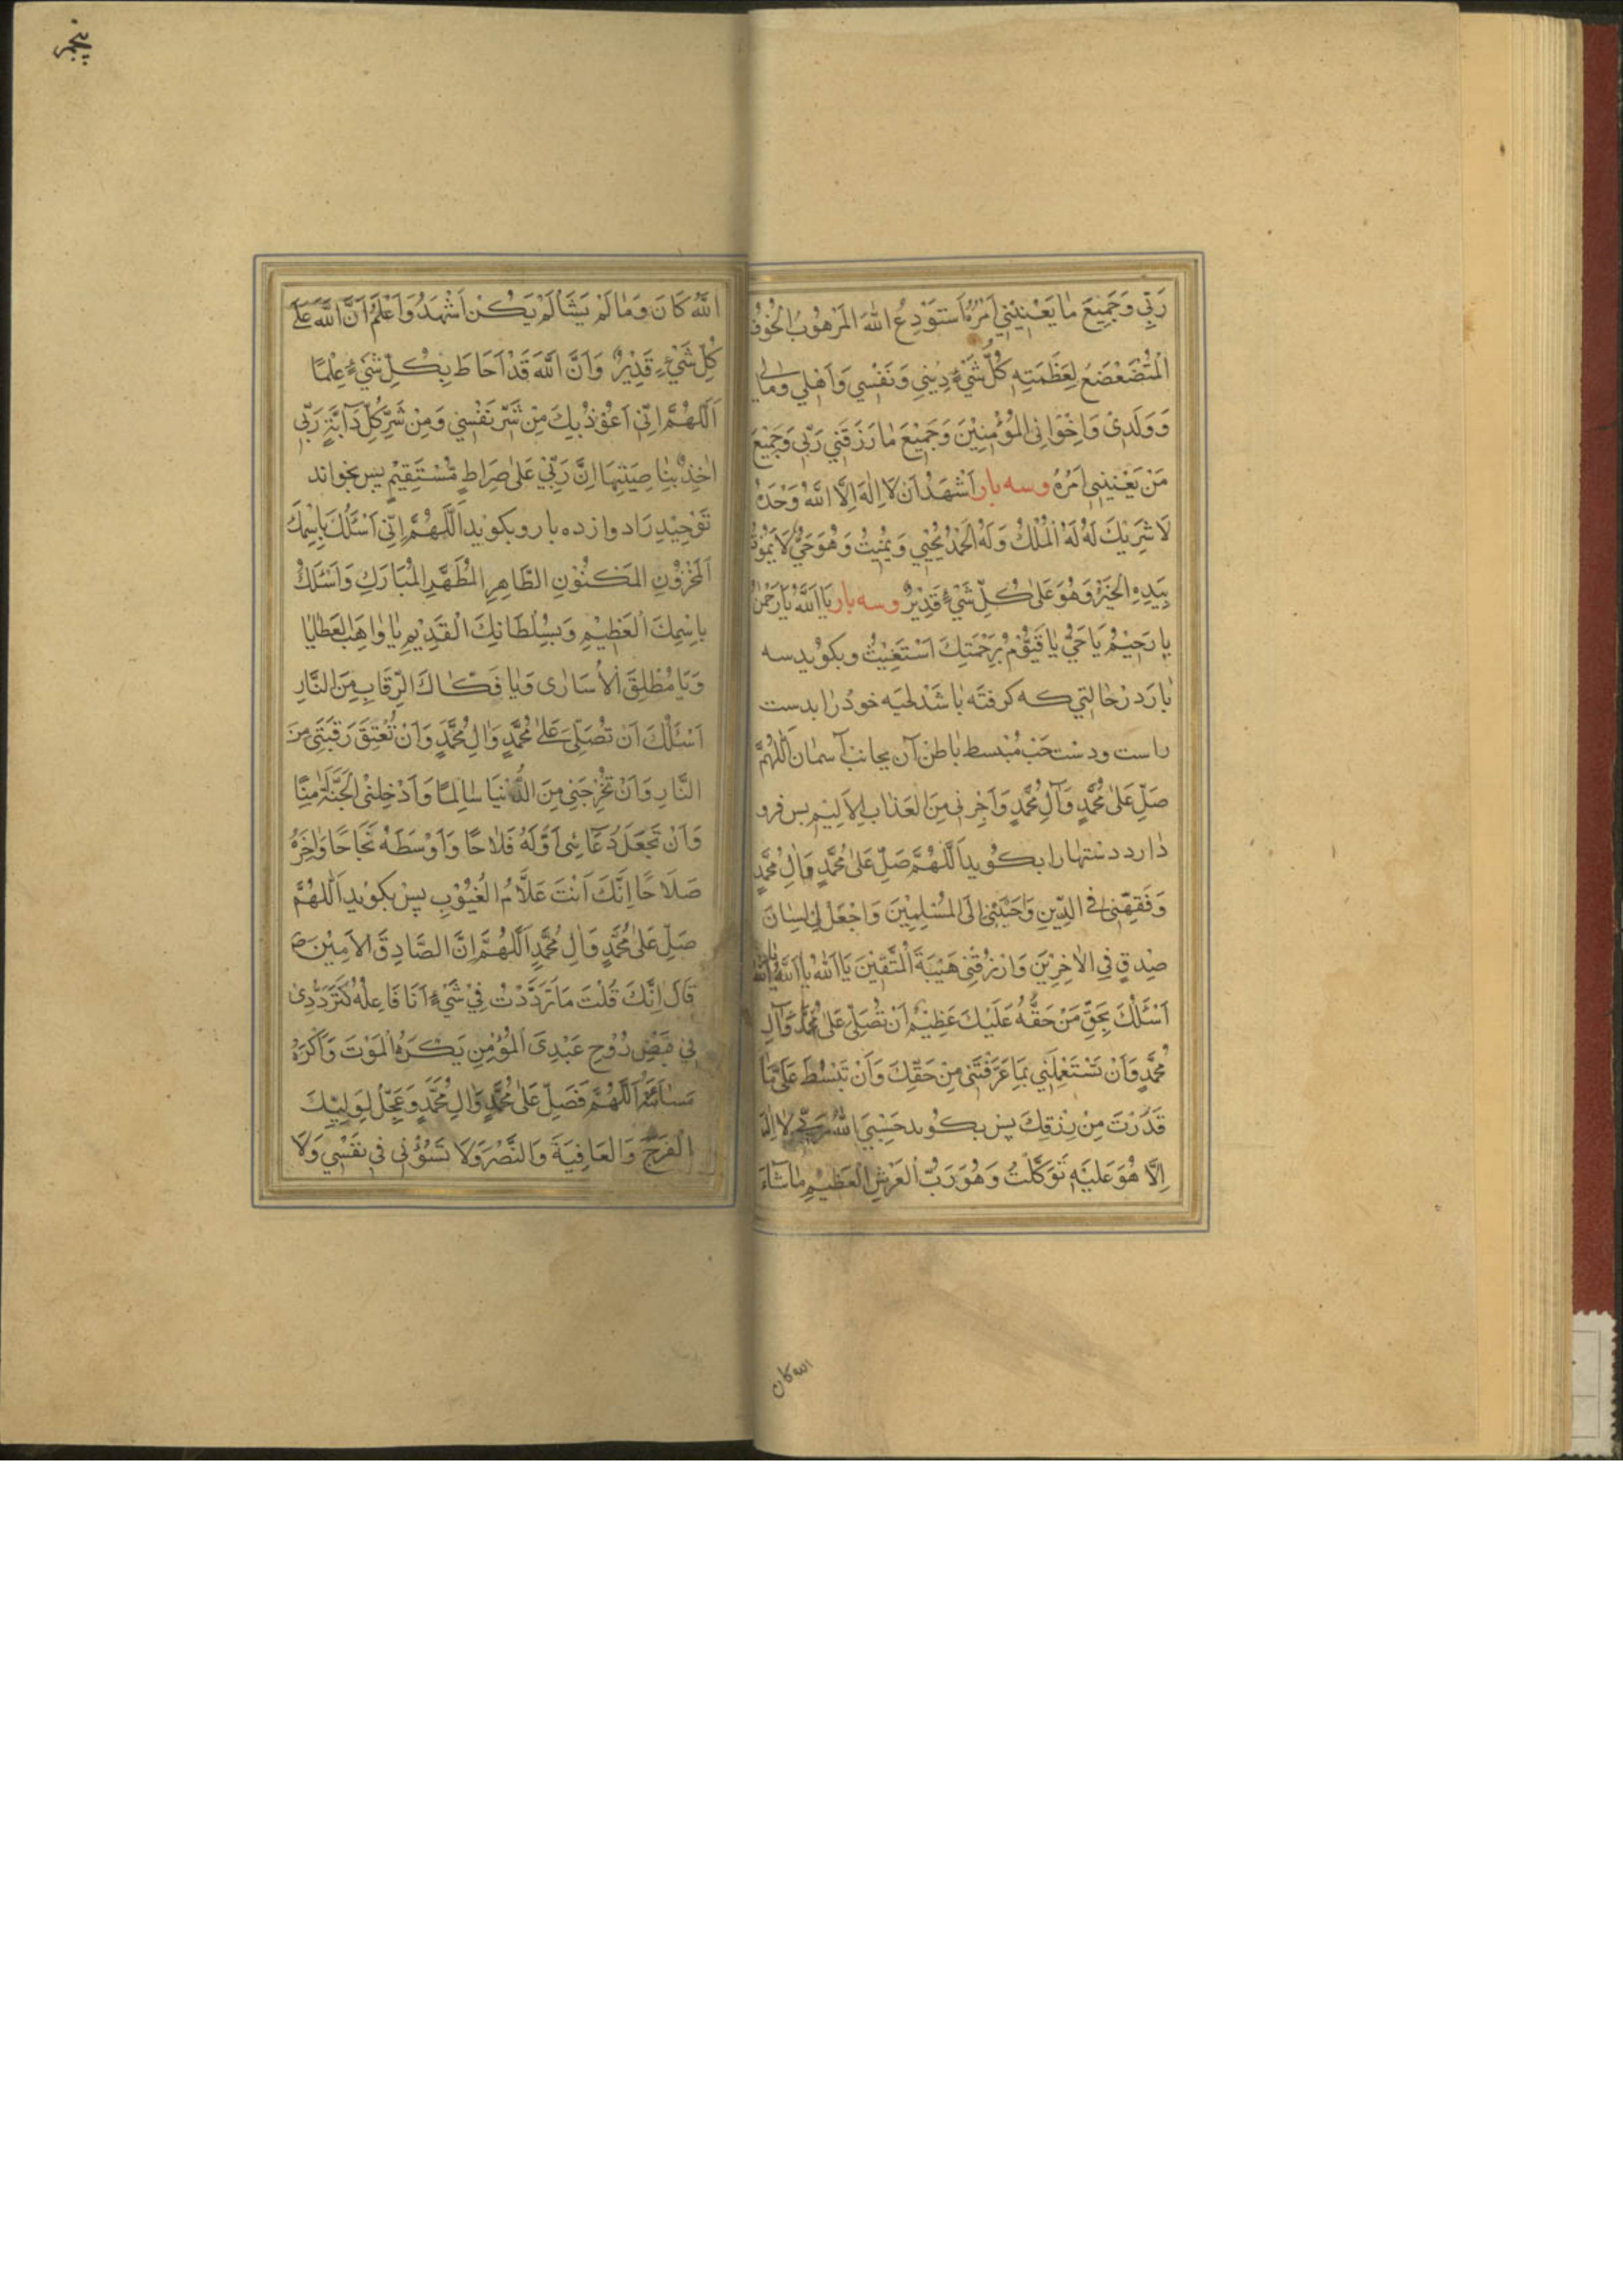 رَبِّي وَجَمِيعَ مَا يَعْنِيْنِي اَمْرُهُ اَسْتَوْدِعُ اللهَ المَرْهُوْبَ الْمَخُوْفَ
الْمُتَضَعْضَعُ لِعَظَمَتِهِ كُلُّ شَيْءٍ دِيْنِي وَنَفْسِي وَاَهْلِي وَمَالِي
وَوَلَدِىْ وَاِخْوَانِى الْمُؤْمِنِيْنَ وَجَمِيْعَ مَا رَزَقَنِي رَبِّي وَجَمِيْعَ
مَنْ يَعْنِيْنِي اَمْرُهُ وسه بار اَشْهَدُ اَنْ لَا اِلٰهَ اِلَّا اللهُ وَحْدَهُ
لَا شَرِيْكَ لَهُ لَهُ الْمُلْكُ وَلَهُ الْحَمْدُ يُحْيِي وَيُمِيْتُ وَهُوَ حَيٌّ لَا يَمُوْتُ
بِيَدِهِ الْخَيْرُ وَهُوَ عَلٰى كُلِّ شَيْءٍ قَدِيْرٌ وسه بار يَا اَللهُ يَا رَحْمٰنُ
يَا رَحِيْمُ يَا حَيُّ يَا قَيُّوْمُ بِرَحْمَتِكَ اَسْتَغِيْثُ وبكويد سه
بار در حالتي كه كرفته باشد لحيه خود را بدست
راست ودست چپ منبسط باطن آن بجانب آسمان اَللّٰهُمَّ
صَلِّ عَلٰى مُحَمَّدٍ وَآلِ مُحَمَّدٍ وَاَجِرْنِى مِنَ الْعَذَابِ الْاَلِيْمِ پس فرو
دارد دستها را بكويد اَللّٰهُمَّ صَلِّ عَلٰى مُحَمَّدٍ وَاٰلِ مُحَمَّدٍ
وَفَقِّهْنِى فِى الدِّيْنِ وَحَبِّبْنِى اِلَى الْمُسْلِمِيْنَ وَاجْعَلْ لِى لِسَانَ
صِدْقٍ فِي الْاٰخِرِيْنَ وَارْزُقْنِى هَيْبَةَ الْمُتَّقِيْنَ يَا اَللهُ يَا اَللهُ يَا اَللهُ
اَسْئَلُكَ بِحَقِّ مَنْ حَقُّهُ عَلَيْكَ عَظِيْمٌ اَنْ تُصَلِّىَ عَلٰى مُحَمَّدٍ وَآلِ
مُحَمَّدٍ وَاَنْ تَسْتَعْمِلَنِي بِمَا عَرَّفْتَنِى مِنْ حَقِّكَ وَاَنْ تَبْسُطَ عَلَىَّ مَا
قَدَّرْتَ مِنْ رِزْقِكَ پس بكويد حَسْبِيَ اللهُ رَبِّي لَا اِلٰهَ
اِلَّا هُوَ عَلَيْهِ تَوَكَّلْتُ وَهُوَ رَبُّ الْعَرْشِ الْعَظِيْمِ مَا شَاءَ
الله كان
پنجم
اللهُ كَانَ وَمَا لَمْ يَشَاْ لَمْ يَكُنْ اَشْهَدُ وَاَعْلَمُ اَنَّ اللهَ عَلٰى
كُلِّ شَيْءٍ قَدِيْرٌ وَاَنَّ اللهَ قَدْ اَحَاطَ بِكُلِّ شَيْءٍ عِلْمًا
اَللّٰهُمَّ اِنِّى اَعُوْذُ بِكَ مِنْ شَرِّ نَفْسِي وَمِنْ شَرِّ كُلِّ دَآبَّةٍ رَبِّي
اٰخِذٌ بِنَاصِيَتِهَا اِنَّ رَبِّيْ عَلٰى صِرَاطٍ مُسْتَقِيْمٍ پس بخواند
تَوْحِيْدِ رَا دوازده بار وبكويد اَللّٰهُمَّ اِنِّى اَسْئَلُكَ بِاسْمِكَ
الْمَخْزُوْنِ الْمَكْنُوْنِ الطَّاهِرِ الْمُطَهَّرِ الْمُبَارَكِ وَاَسْئَلُكَ
بِاسْمِكَ الْعَظِيْمِ وَبِسُلْطَانِكَ الْقَدِيْمِ يَا وَاهِبَ الْعَطَايَا
وَيَا مُطْلِقَ الْاُسَارٰى وَيَا فَكَّاكَ الرِّقَابِ مِنَ النَّارِ
اَسْئَلُكَ اَنْ تُصَلِّىَ عَلٰى مُحَمَّدٍ وَاٰلِ مُحَمَّدٍ وَاَنْ تُعْتِقَ رَقَبَتِي مِنَ
النَّارِ وَاَنْ تُخْرِجَنِي مِنَ الدُّنْيَا سَالِمًا وَاَدْخِلْنِى الْجَنَّةَ اٰمِنًا
وَاَنْ تَجْعَلَ دُعَائِى اَوَّلَهُ فَلَاحًا وَاَوْسَطَهُ نَجَاحًا وَاٰخِرَهُ
صَلَاحًا اِنَّكَ اَنْتَ عَلَّامُ الْغُيُوْبِ پس بكويد اَللّٰهُمَّ
صَلِّ عَلٰى مُحَمَّدٍ وَاٰلِ مُحَمَّدٍ اَللّٰهُمَّ اِنَّ الصَّادِقَ الْاَمِيْنَ ص
قَالَ اِنَّكَ قُلْتَ مَا تَرَدَّدْتُ فِيْ شَيْءٍ اَنَا فَاعِلُهُ كَتَرَدُّدِىْ
فِي قَبْضِ رُوْحِ عَبْدِىَ الْمُؤْمِنِ يَكْرَهُ الْمَوْتَ وَاَكْرَهُ
مَسَائَتَهُ اَللّٰهُمَّ فَصَلِّ عَلٰى مُحَمَّدٍ وَاٰلِ مُحَمَّدٍ وَعَجِّلْ لِوَلِيِّكَ
الْفَرَجَ وَالْعَافِيَةَ وَالنَّصْرَ وَلَا تَسُؤْنِى فِى نَفْسِي وَلَا